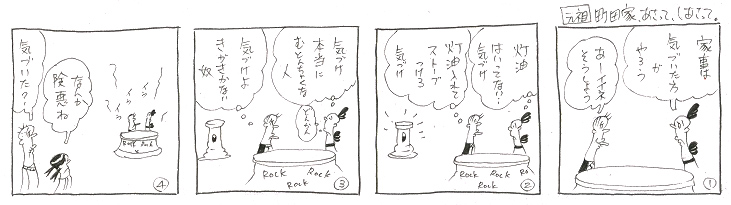 元祖 的田家、あさって、しあさって。
家事は
気づいた方
が
やろう
あーイイネ
そうしよう
①
灯油
はいってない…
気づけ
灯油入れて
ストーブ
つけろ
気づけ
ROCK ROCK RO
ROCK
②
気づけ
本当に
むとんちゃくな
人
気づけよ
きがきかない
奴
ROCK ROCK
ROCK
③
イラ
イラ
ROCK ROCK
なんか
険悪ね
気づいた?
④